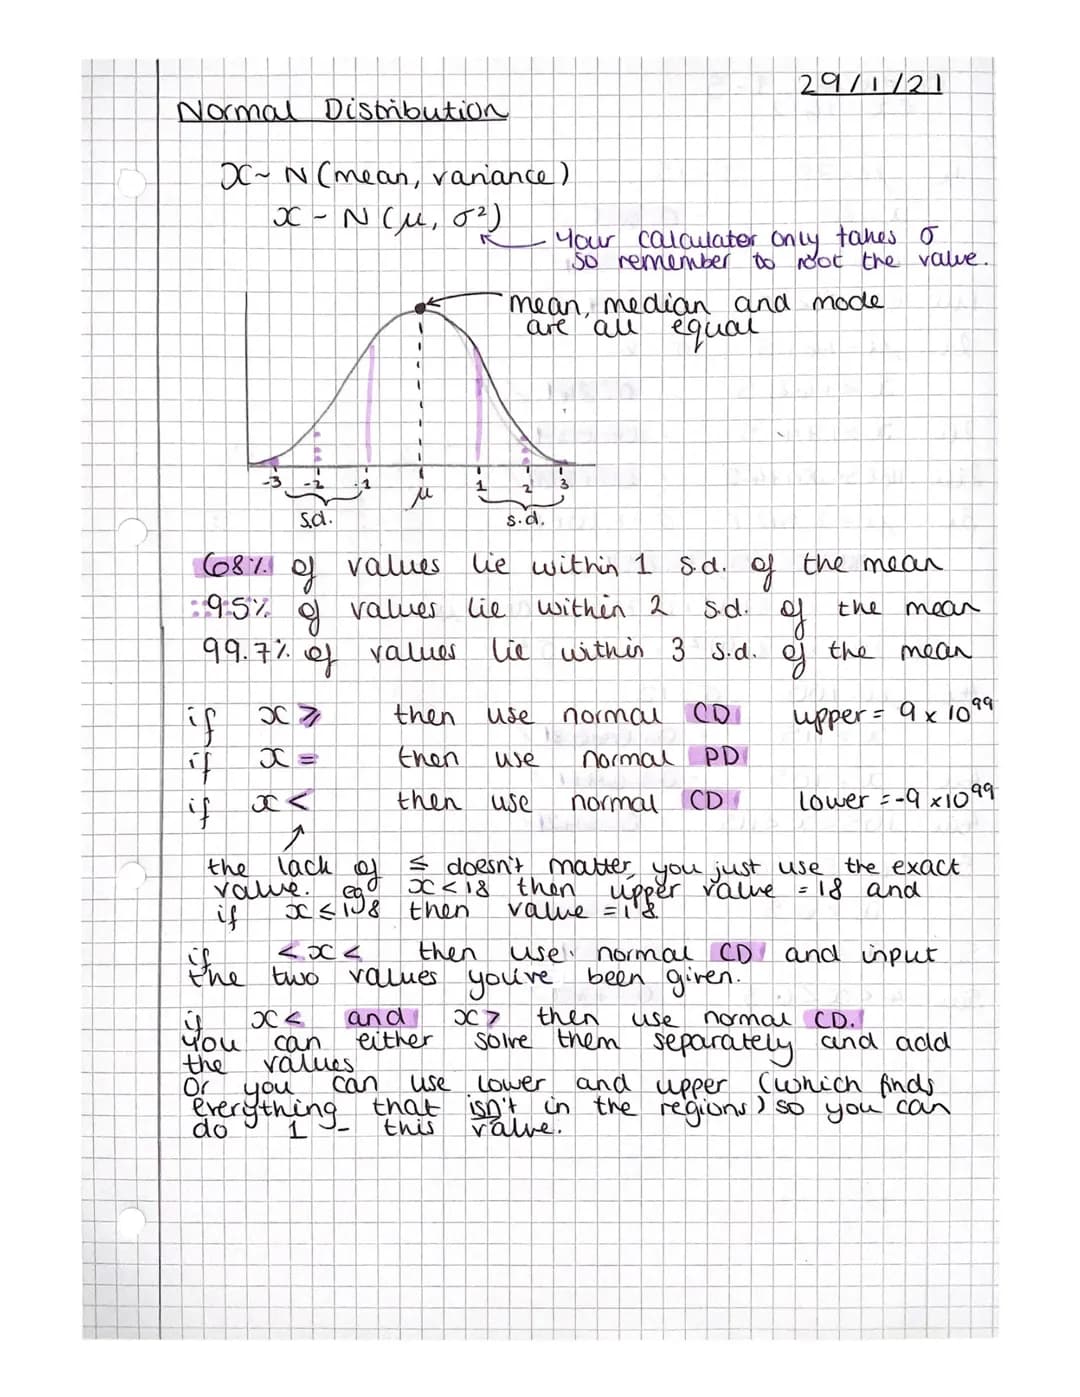 29/1/21
Normal Distribution
x ~ N (mean, variance)
x ~ N (μ, σ²)
Your calculator only takes σ
so remember to root the value.
mean, median and mode
are all equal
-3 -2 -1 μ 1 2 3
s.d. s.d.
68% of values lie within 1 s.d. of the mean
95% of values lie within 2 s.d. of the mean
99.7% of values lie within 3 s.d. of the mean
if x ⩾ then use normal CD upper = 9 x 10⁹⁹
if x = then use normal PD
if x < then use normal CD lower = -9 x 10⁹⁹
the lack of ≤ doesn't matter, you just use the exact
value. eg x < 18 then upper value = 18 and
if x ≤ 18 then value = 18
if < x < then use normal CD and input
the two values you've been given.
if x < and x > then use normal CD.
You can either solve them separately and add
the values
Or you can use lower and upper (which finds
everything that isn't in the regions) so you can
do 1 - this value.